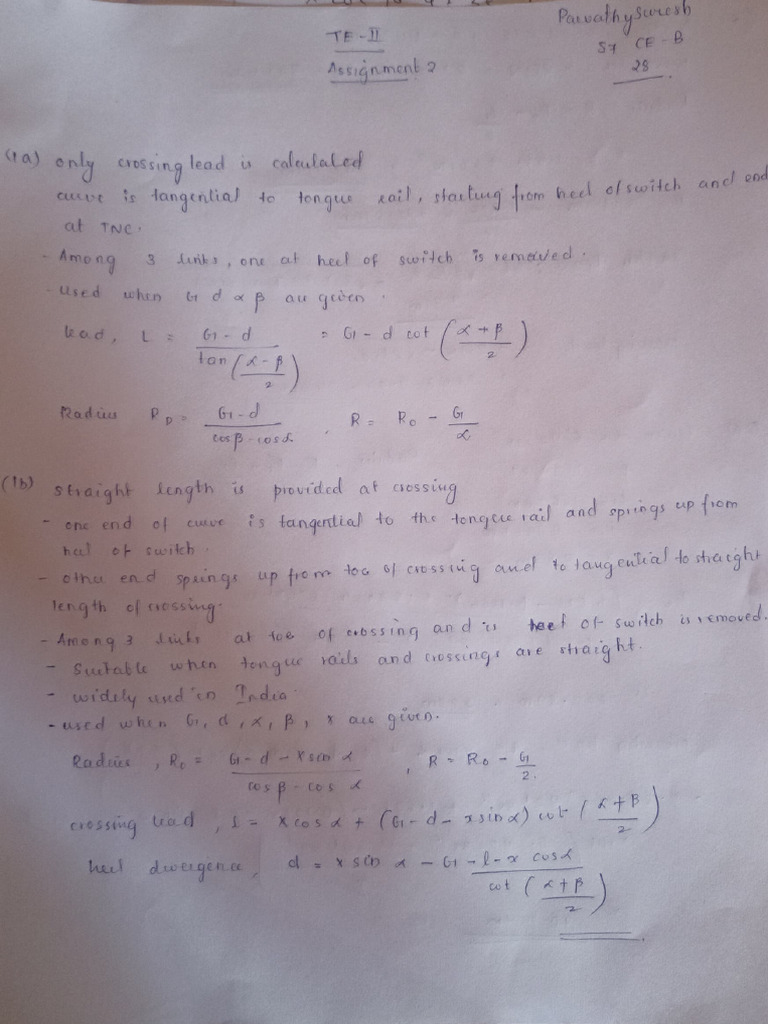 Parvathy Suresh
TE-II
S7 CE-B
Assignment 2
28
(1a) only crossing lead is calculated
curve is tangential to tongue rail, starting from heel of switch and end
at TNC.
- Among 3 links, one at heel of switch is removed.
- Used when G d α β are given.
lead, L = G - d / tan (α - β / 2) = G - d cot (α + β / 2)
Radius R_D = G - d / cos β - cos α , R = R_0 - G / α
(1b) straight length is provided at crossing
- one end of curve is tangential to the tongue rail and springs up from
heel of switch.
- other end springs up from toe of crossing and to tangential to straight
length of crossing.
- Among 3 links at toe of crossing and is heel of switch is removed.
- Suitable when tongue rails and crossings are straight.
- widely used in India.
- used when G, d, α, β, x are given.
Radius, R_0 = G - d - x sin α / cos β - cos α , R = R_0 - G / 2.
crossing lead, l = x cos α + (G - d - x sin α) cot (α + β / 2)
heel divergence, d = x sin α - G - l - x cos α / cot (α + β / 2)